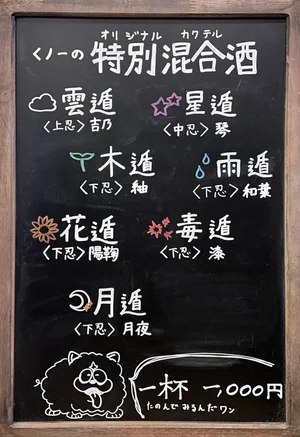 オリジナル カクテル
くノ一の 特別混合酒
雲遁 星遁
〈上忍〉吉乃 〈中忍〉琴
木遁 雨遁
〈下忍〉紬 〈下忍〉和葉
花遁 毒遁
〈下忍〉陽鞠 〈下忍〉漆
月遁
〈下忍〉月夜
一杯 一,000円
たのんでみるんだワン